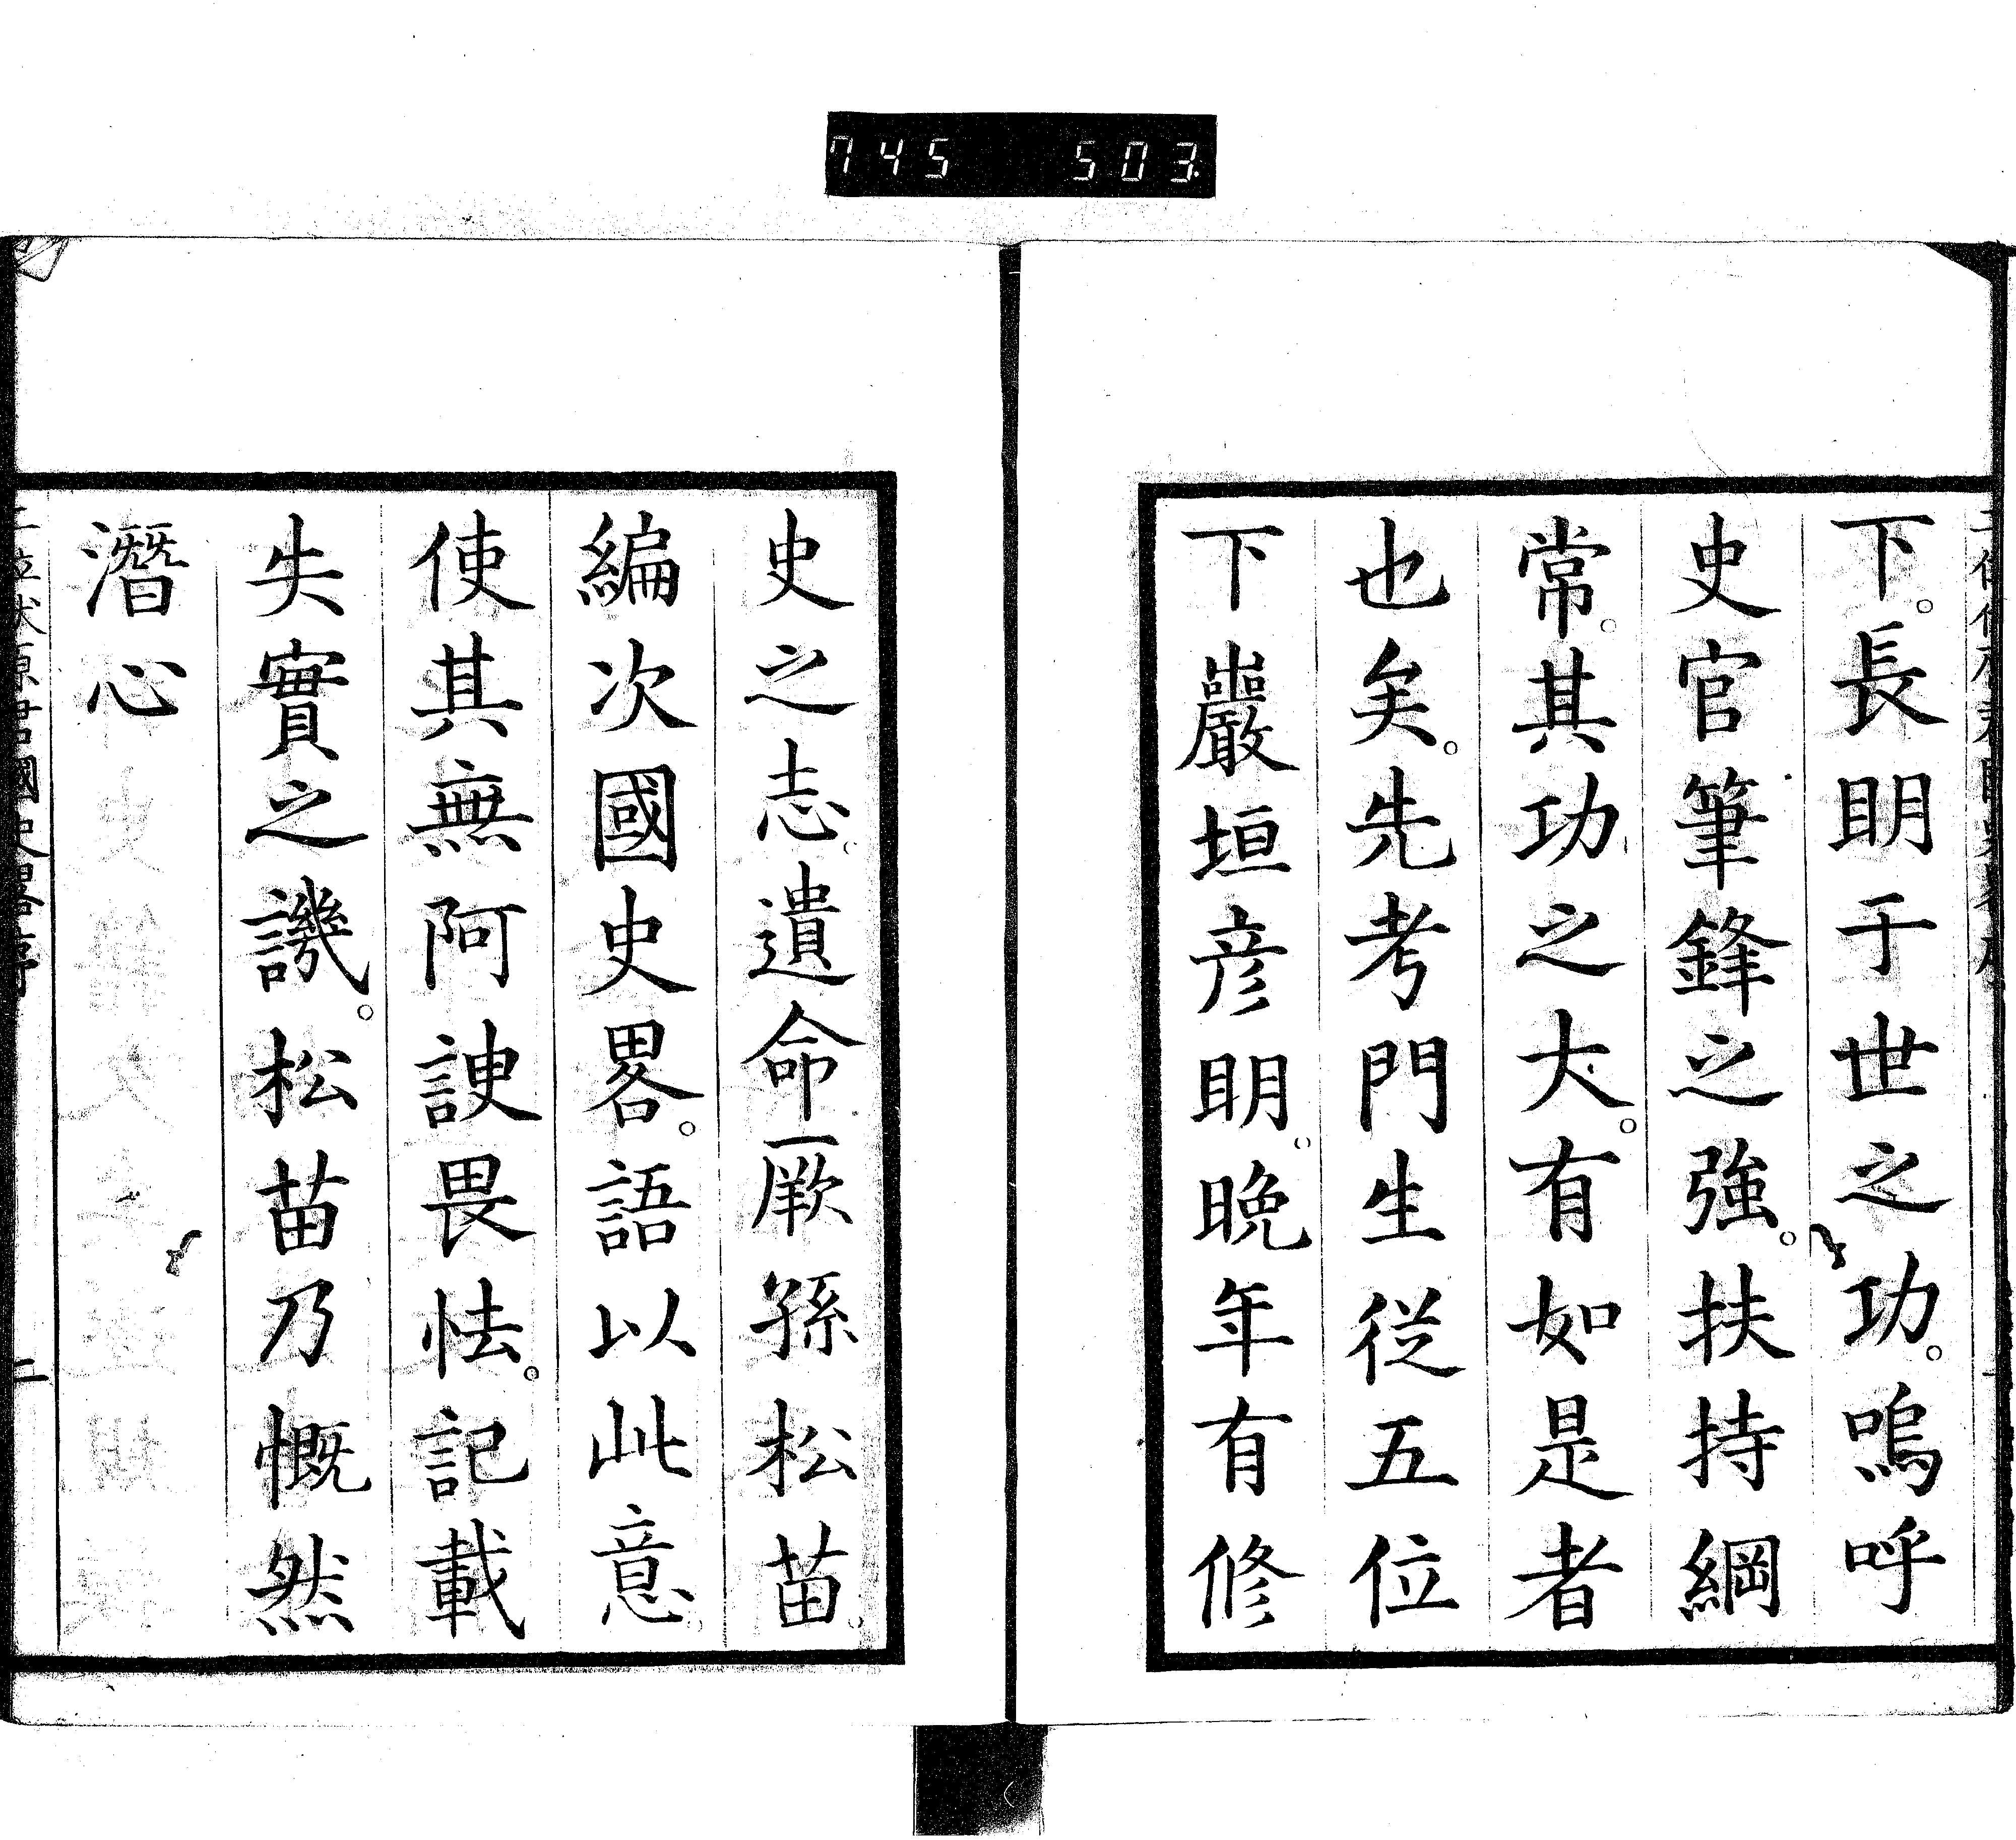 745 503
下。長明于世之功。嗚呼
史官筆鋒之強。扶持綱
常。其功之大。有如是者
也矣。先考門生從五位
下巖垣彦明。晩年有修
史之志。遺命厥孫松苗。
編次國史畧。語以此意。
使其無阿諛畏怯。記載
失實之譏。松苗乃慨然
潛心